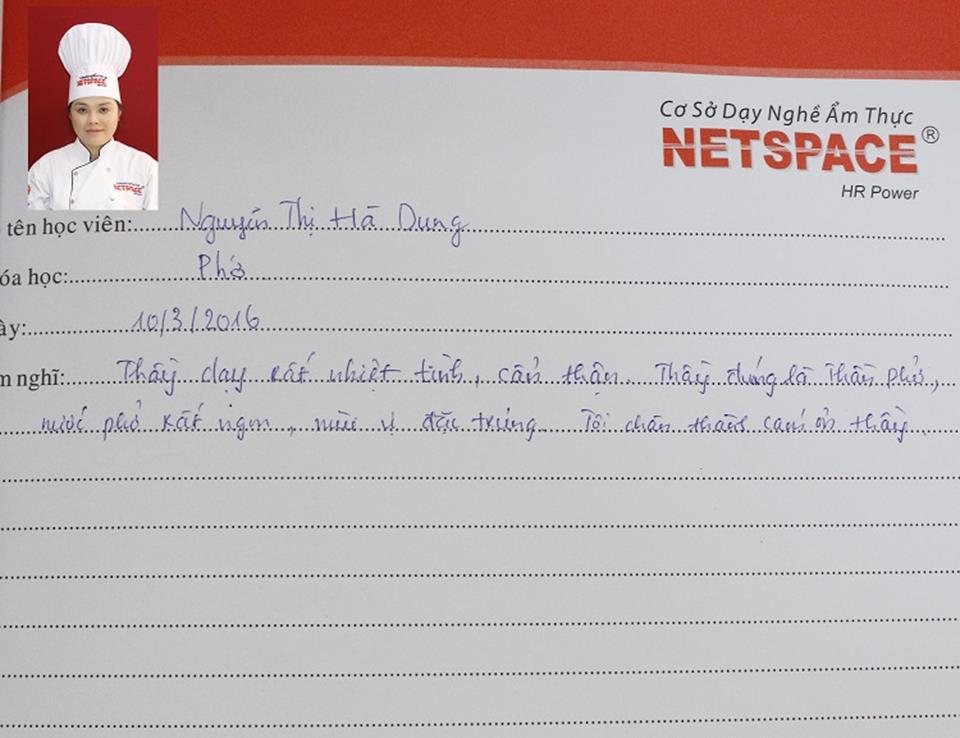 Cơ Sở Dạy Nghề Ẩm Thực
NETSPACE®
HR Power
tên học viên: Nguyễn Thị Hà Dung
óa học: Phở
ày: 10/3/2016
m nghĩ: Thầy dạy rất nhiệt tình, cẩn thận. Thầy đúng là Thần phở,
nước phở rất ngon, mùi vị đặc trưng Tôi chân thành cám ơn thầy.